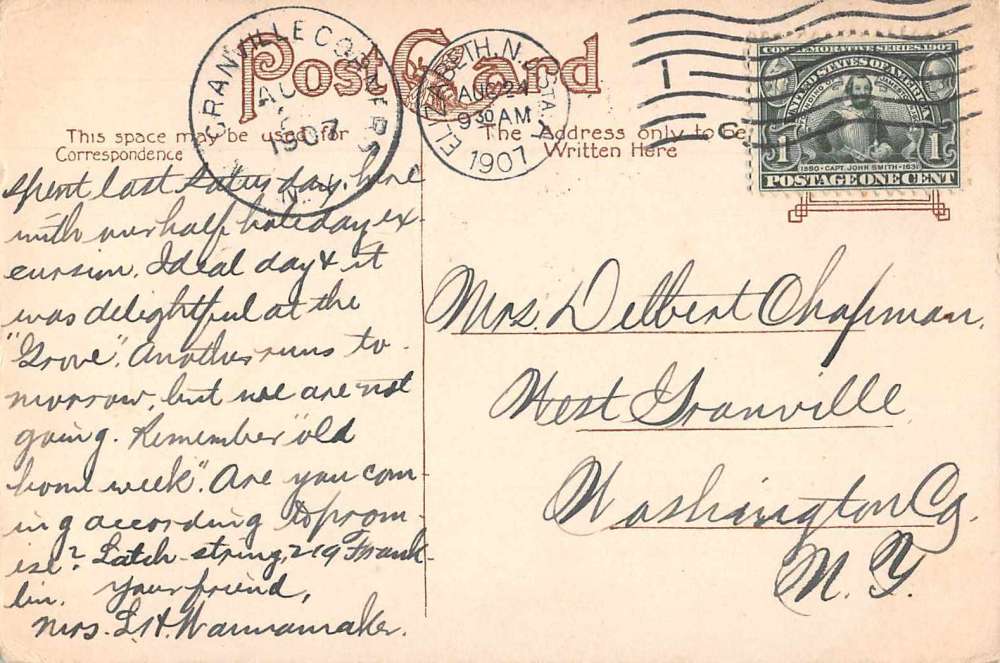 Post Card
GRANVILLE CORNERS
AU
1907
N.Y.
ELIZABETH, N.J. STA.
AUG 24
9 30 AM
1907
1
6
COMMEMORATIVE SERIES, 1907
UNITED STATES OF AMERICA
1 1
1580 · CAPT. JOHN SMITH · 1631
POSTAGE ONE CENT
This space may be used for
Correspondence
The Address only to be
Written Here
Spent last Saturday, here
with our half holiday ex-
cursion. Ideal day & it
was delightful at the
"Grove". Another runs to-
morrow, but we are not
going. Remember "old
home week". Are you com-
ing according to prom-
ise? Latch-string, 219 Frank-
lin. Your friend,
Mrs. L. H. Wannamaker.
Mrs. Delbert Chapman,
West Granville
Washington Co.
N. Y.